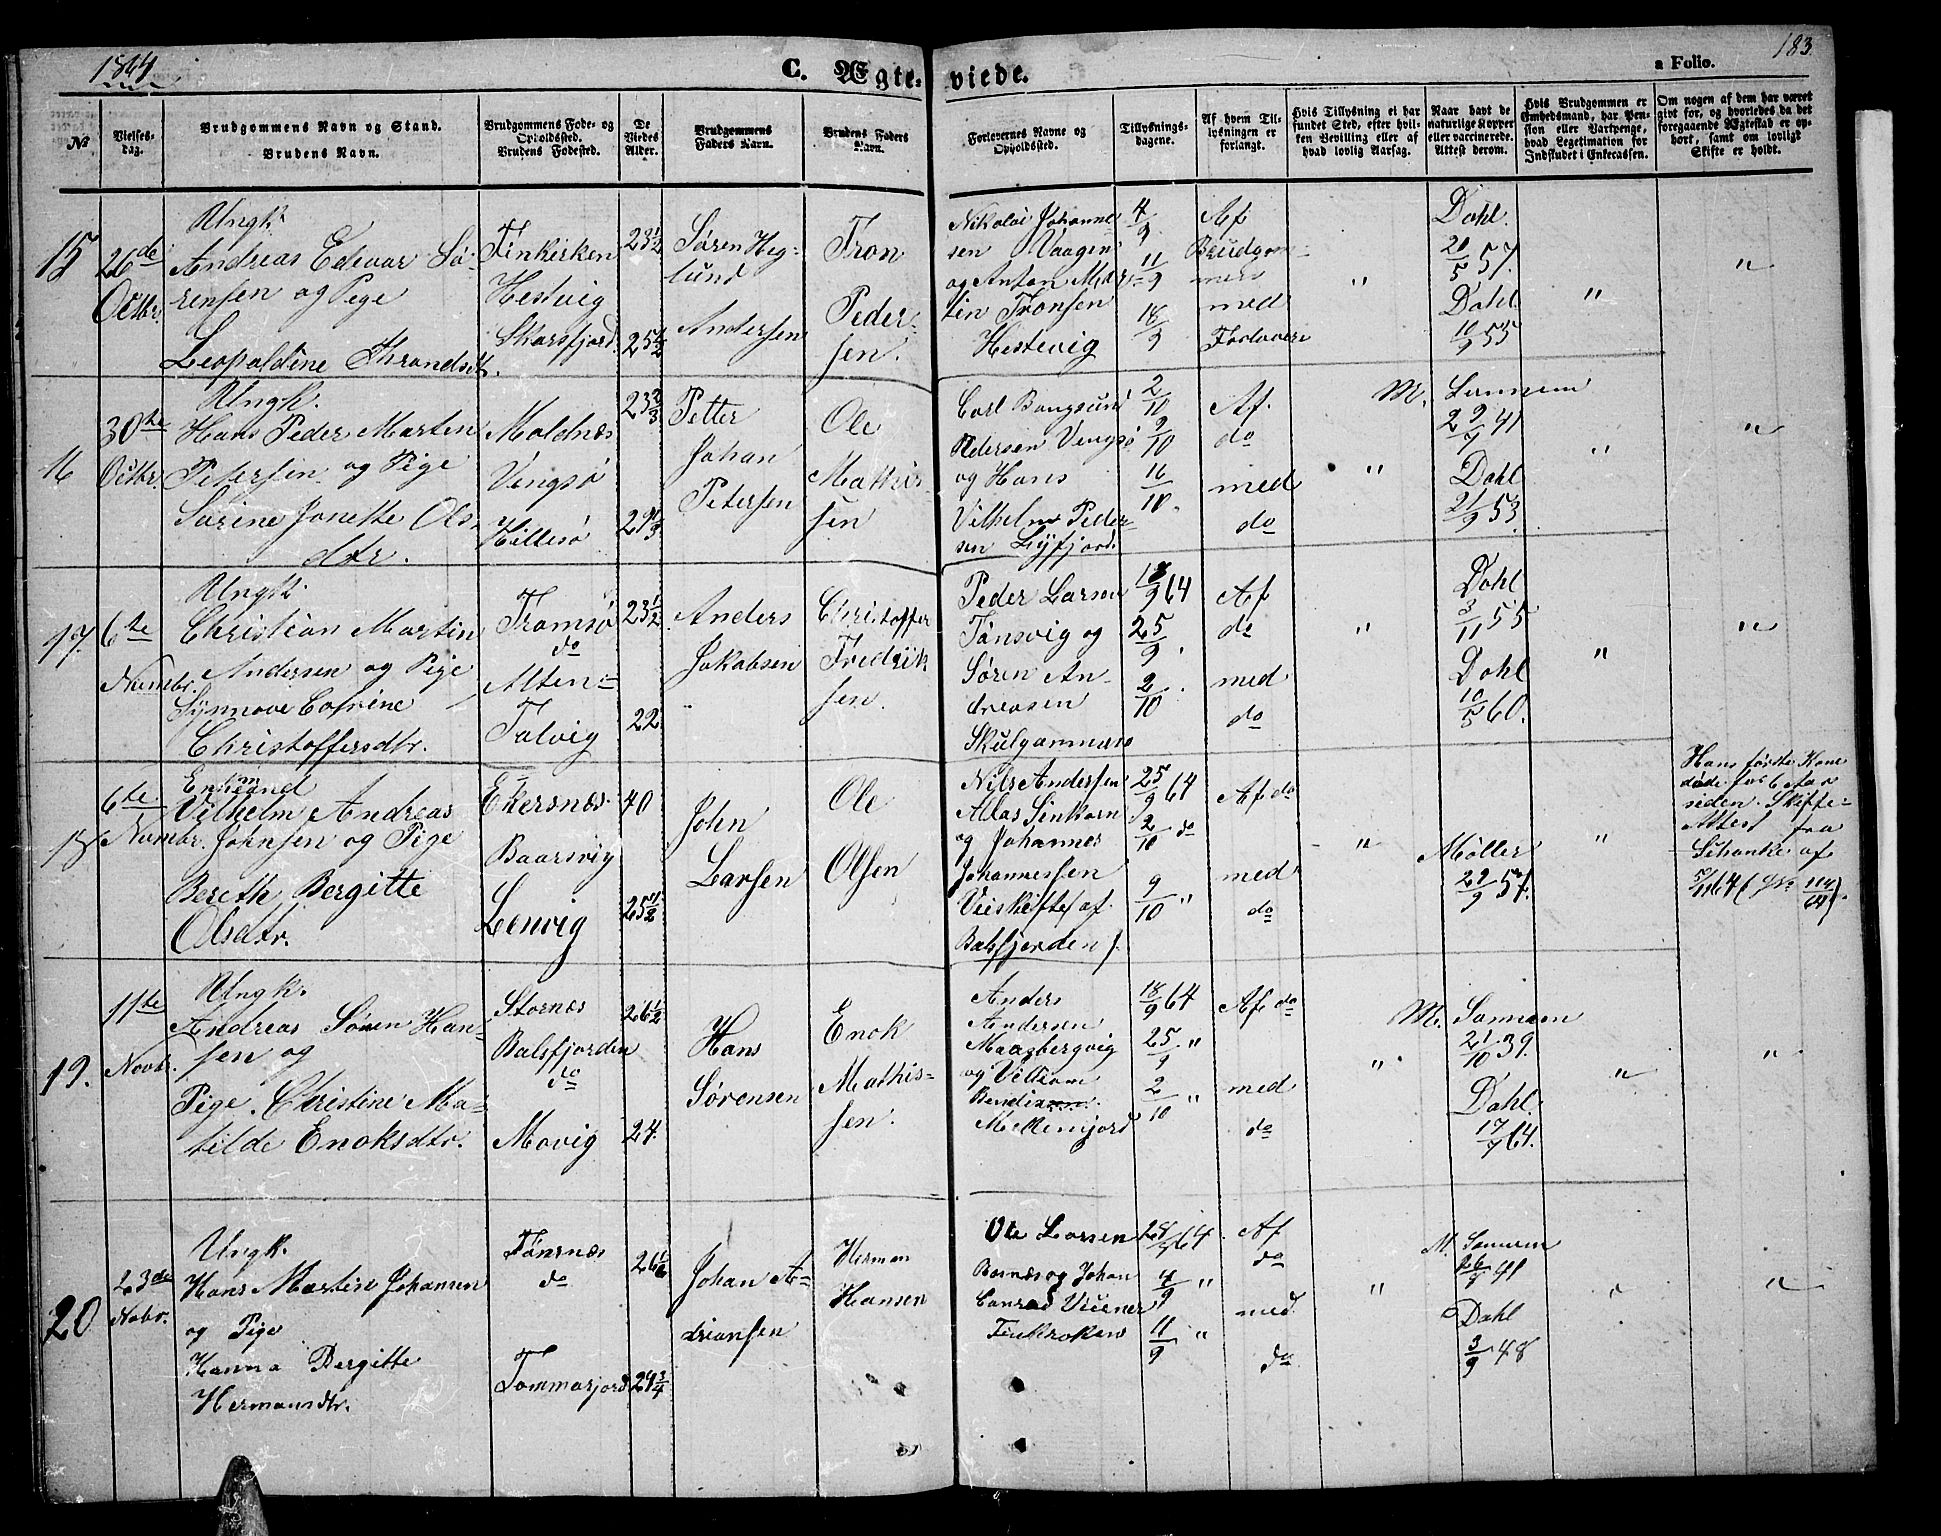 1864
C. Ægteviede.
183.
a Folio.
No
Vielses-
dag.
Brudgommens Navn og Stand.
Brudens Navn.
Brudgommens Føde- og
Opholdssted.
Brudens Fødested.
De
Viedes
Alder.
Brudgommens
Faders Navn.
Brudens Faders
Navn.
Forlovernes Navne og
Opholdssted.
Tillysnings-
dagene.
Af hvem Til-
lysningen er
forlangt.
Hvis Tillysning ei har
fundet Sted, efter hvil-
ken Bevilling eller af
hvad lovlig Aarsag.
Naar havt de
naturlige Kopper
eller vaccinerede.
Attest derom.
Hvis Brudgommen er
Embedsmand, har Pen-
sion eller Vartpenge,
hvad Legetimation for
Indskudet i Enkecassen.
Om nogen af dem har været
givt for, og hvorledes da det
foregaaende Ægteskab er op-
hørt, samt om lovligt
Skifte er holdt.
15
26de
Octbr.
Ungk.
Andreas Edevar Sø-
rensen og Pige
Leopoldine Thrandsdt.
Finkirken
Hestvig
Skarsfjord
23 1/2
25 1/2
Søren Heg-
lund
Andersen
Tron
Peder-
sen.
Nikolai Johanne
sen Vaagen
og Anton Mar-
tin Tronsen
Hestevig
4/9
11/9
18/9
Af
Brudgom-
mens
med
Forlovere
"
Dahl.
20/5 57.
Dahl.
10/9 55
"
"
16
30te
Octbr.
Ungk.
Hans Peder Marten
Petersen og Pige
Sarine Janette Ols-
dtr.
Moldnæs
Vengsø
Hillesø
23 2/3
29 1/3
Petter
Johan
Petersen
Ole
Mathis-
sen
Carl Bangsund
Pedersen Vengsø
og Hans
Vilhelm Peder-
sen Lyfjord.
2/10
9/10
16/10.
Af.
do
med
do
"
M. Sannem
22/7 41
Dahl
21/9 53.
"
"
17.
6te
Novmbr.
Ungk.
Christian Martin
Andersen og Pige
Synnove Cathrine
Christoffersdtr.
Tromsø
do
Alten-
Talvig
23 1/2
22
Anders
Jakobsen
Christoffer
Fredrik
sen.
Peder Larsen
Tønsvig og
Søren An-
dreasen
Skulgammen
18/9 64
25/9.
2/10.
Af
do
med
do
"
Dahl
3/11 55
Dahl
10/5 60.
"
"
18
6te
Novmbr.
Enkemand
Vilhelm Andreas
Johnsen og Pige
Bereth Bergitte
Olsdtr.
Ekersnæs
Baarsvig
Lenvig
40
25 1/2
John
Larsen
Ole
Olsen
Nils Andersen
og Johannes
Johannessen
Balsfjorden).
25/9 64
2/10 do
9/10 "
Af do
med
do
"
Møller
29/9 57.
"
Hans første Kone
døde for 6 Aar
siden. Skifte-
Attest fra
Schanke af
5/11 64 (No 114/64).
19.
11te
Novbr.
Ungk.
Andreas Søren Han-
sen og
Pige. Christine Ma-
tilde Enoksdtr.
Stornæs
Balsfjorden
do
Movig
26 1/2
24.
Hans
Sørensen
Enok
Mathis-
sen.
Anders
Andersen
og Villum
18/9 64
25/9 "
2/10 "
Af do
med
do
"
M. Sannem
21/10 39.
Dahl.
17/7 64.
"
"
20
23de
Nobr.
Ungk.
Hans Martin Johansen
og Pige
Hanna Bergitte
Hermansdtr.
Tønsnæs
do
Tommasjord
26 1/2
24 3/4
Johan A-
driansen
Herman
Hansen
Ole Larsen
og Johan
Conrad
Finkroken
28/8 64.
4/9 "
11/9 "
Af
do
med
do
"
M. Sannem
26/7 41
Dahl
3/9 48
"
"